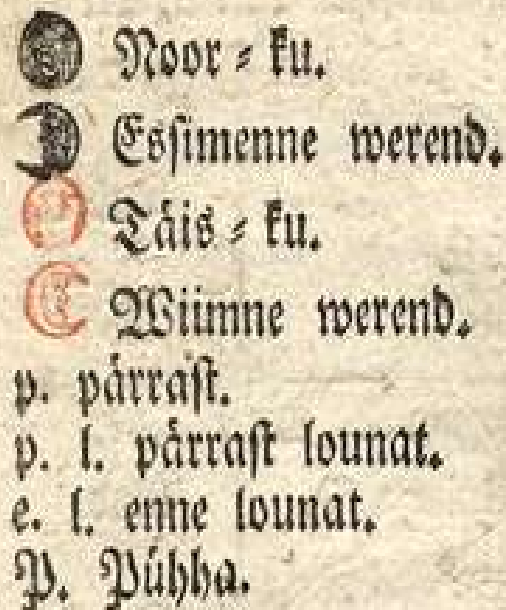 Noor⸗ku.
Esſimenne werend.
Täis⸗ku.
Wiimne werend.
p. pärraſt.
p. l. pärraſt lounat.
e. l. enne lounat.
P. Pühha.